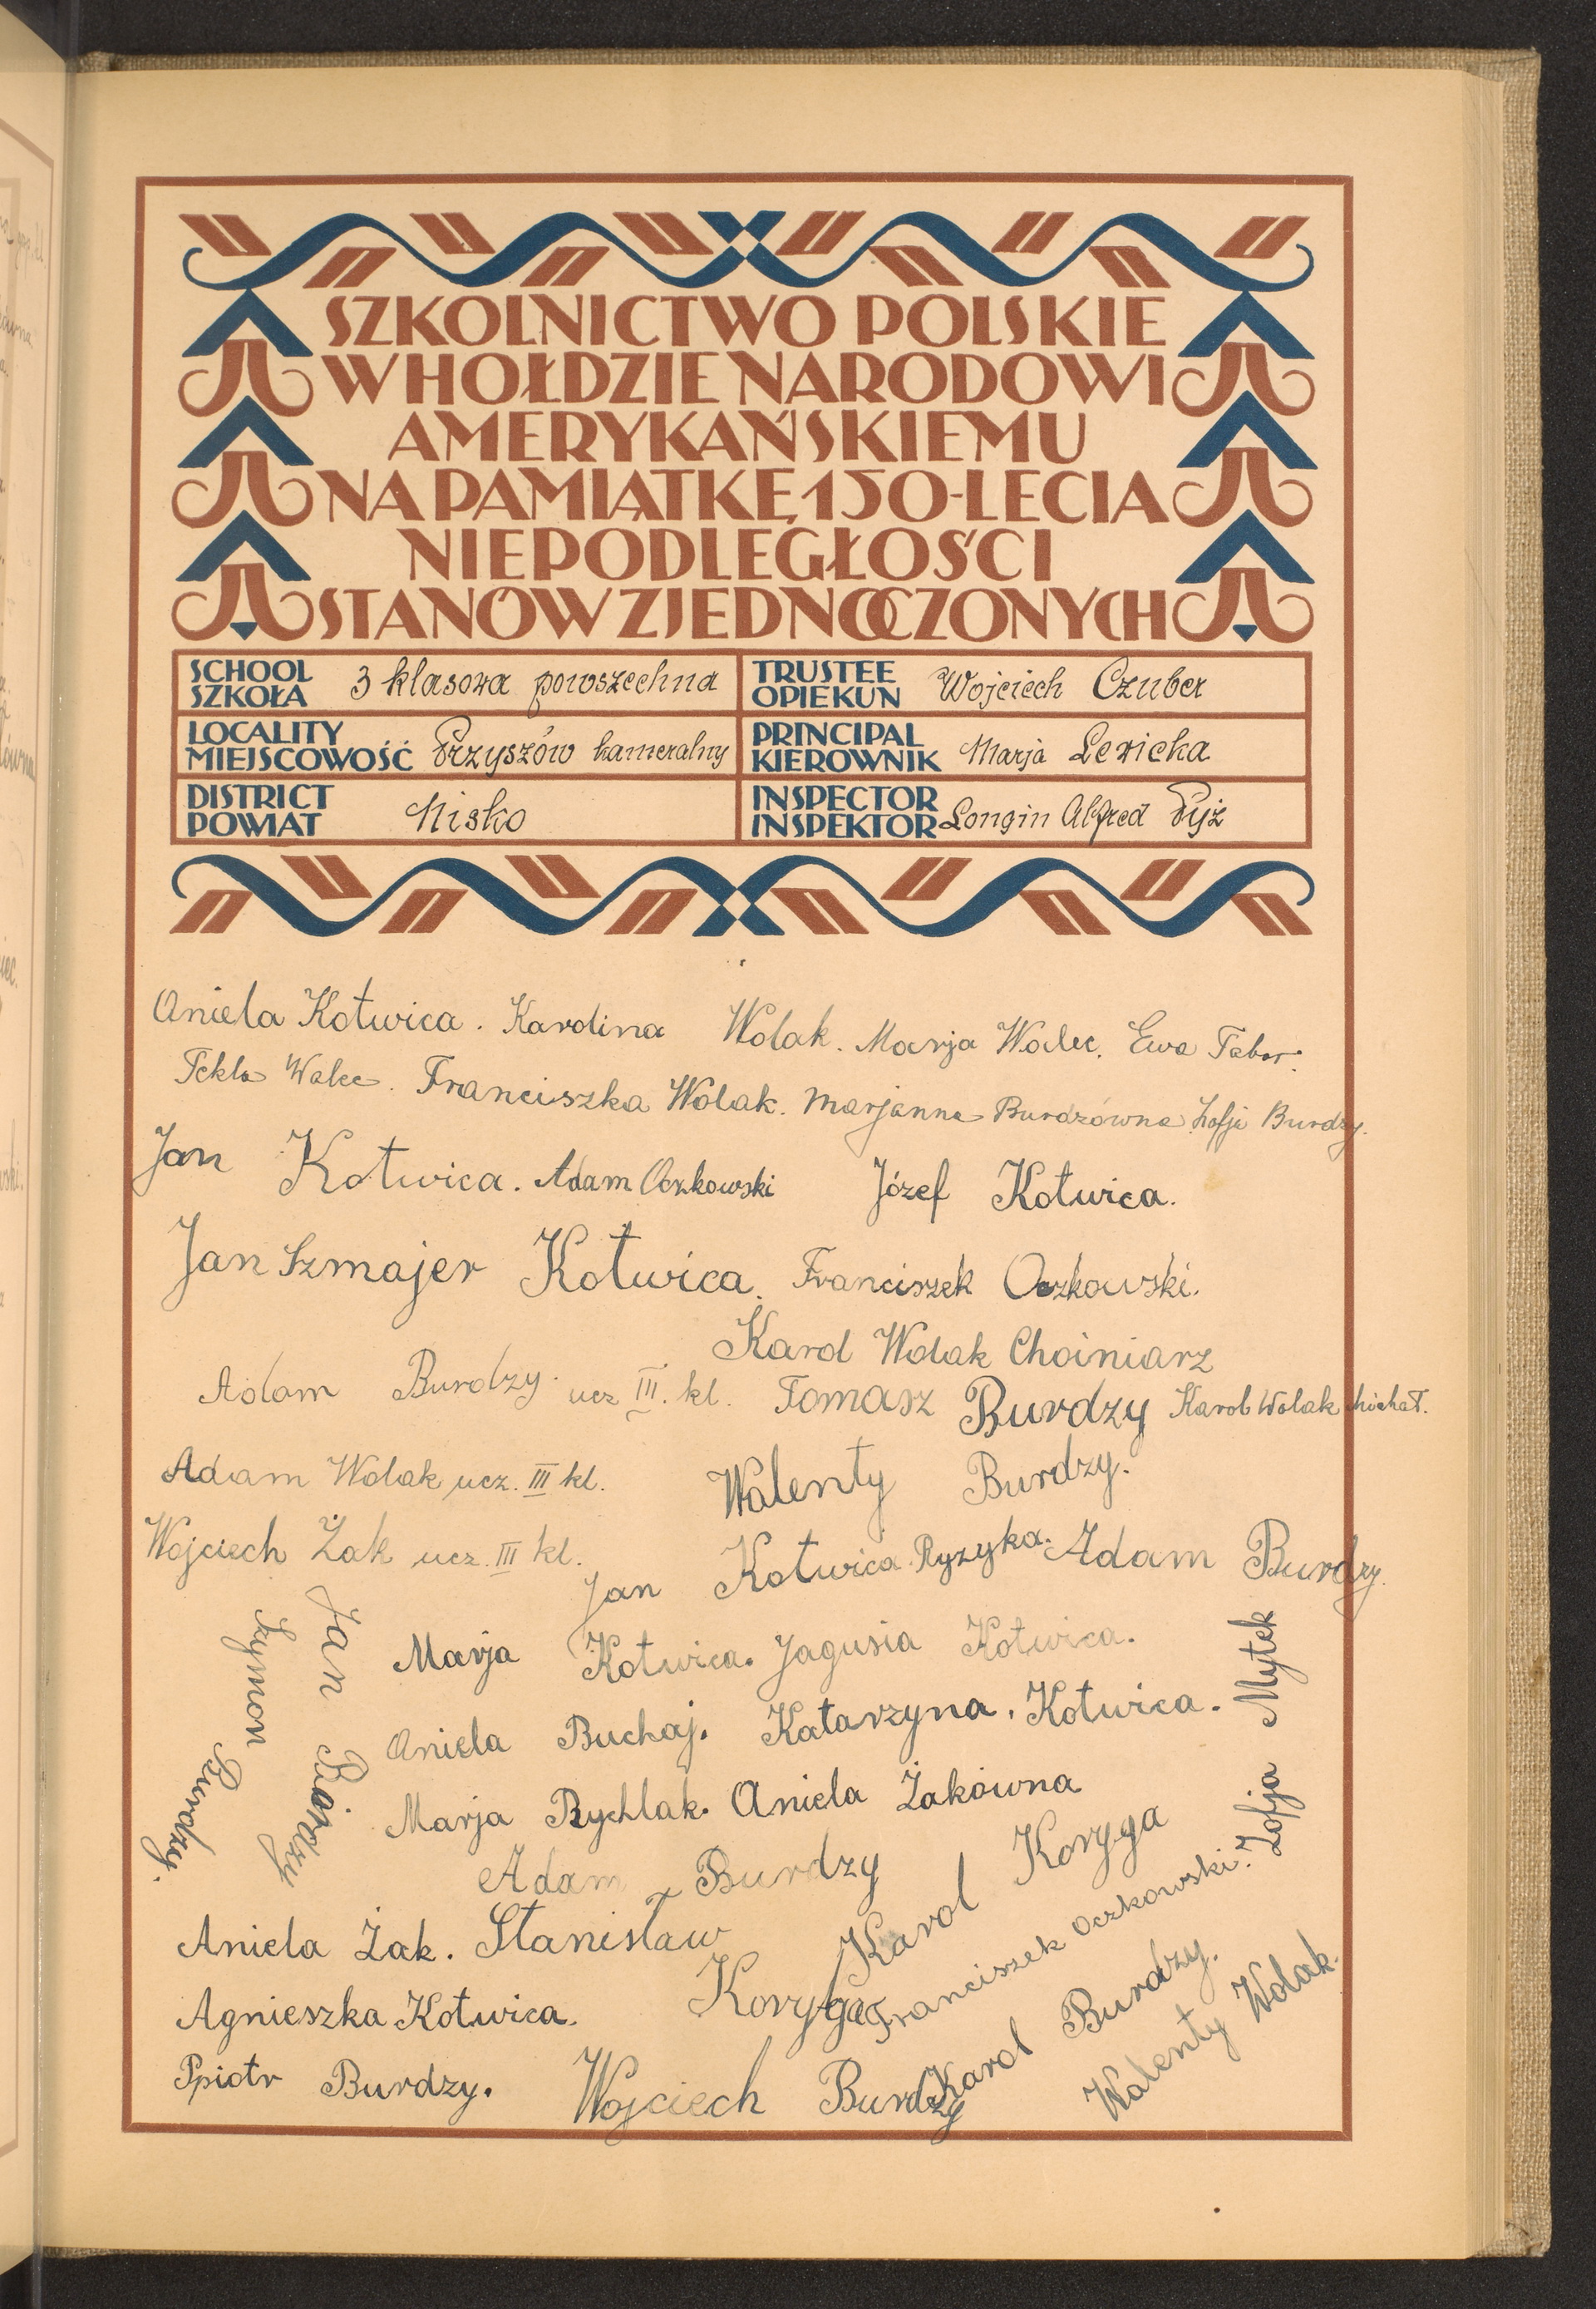 SZKOLNICTWO POLSKIE
W HOŁDZIE NARODOWI
AMERYKAŃSKIEMU
NA PAMIĄTKĘ 150-LECIA
NIEPODLEGŁOŚCI
STANÓW ZJEDNOCZONYCH
SCHOOL
SZKOŁA 3 klasowa powszechna
TRUSTEE
OPIEKUN Wojciech Czuber
LOCALITY
MIEJSCOWOŚĆ Przyszów kameralny
PRINCIPAL
KIEROWNIK Marja Lewicka
DISTRICT
POWIAT Nisko
INSPECTOR
INSPEKTOR Longin Alfred Pyż
Aniela Kotwica. Karolina Wolak. Marja Walec. Ewa Tabor.
Tekla Walec. Franciszka Wolak. Marjanna Burdzówna Zofja Burdzy.
Jan Kotwica. Adam Oczkowski Józef Kotwica.
Jan Szmajer Kotwica. Franciszek Oczkowski.
Karol Wolak Choiniarz
Adam Burdzy. ucz III. kl. Tomasz Burdzy Karol Wolak Michał.
Adam Wolak ucz. III kl. Walenty Burdzy.
Wojciech Żak ucz. III kl.
Jan Kotwica Ryzyka. Adam Burdzy.
Szymon Burdzy.
Jan Burdzy
Marja Kotwica. Jagusia Kotwica.
Aniela Buchaj. Katarzyna. Kotwica.
Marja Rychlak. Aniela Żakówna
Zofja Mytek
Adam Burdzy
Karol Koryga
Aniela Żak. Stanisław
Koryga
Franciszek Oczkowski.
Agnieszka Kotwica.
Karol Burdzy.
Walenty Wolak.
Ppiotr Burdzy. Wojciech Burdzy